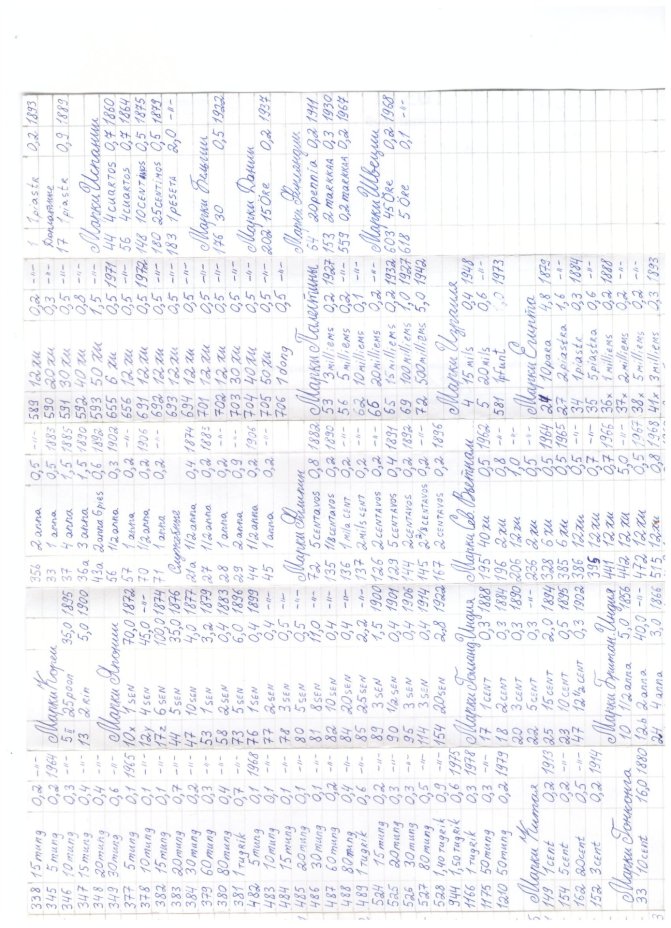 338 15 mung 0,2 -"-
345 5 mung 0,2 1964
346 10 mung 0,3 -"-
347 15 mung 0,4 -"-
348 20 mung 0,4 -"-
349 30 mung 0,6 -"-
377 5 mung 0,1 1965
378 10 mung 0,1 -"-
382 15 mung 0,1 -"-
383 20 mung 0,7 -"-
384 30 mung 0,2 -"-
379 60 mung 0,3 -"-
380 80 mung 0,4 -"-
381 1 tugrik 0,7 -"-
482 5 mung 0,1 1968
483 10 mung 0,1 -"-
484 15 mung 0,1 -"-
485 20 mung 0,1 -"-
486 30 mung 0,1 -"-
487 60 mung 0,2 -"-
488 80 mung 0,4 -"-
489 1 tugrik 0,6 -"-
524 15 mung 0,2 -"-
525 20 mung 0,3 -"-
526 30 mung 0,3 -"-
527 80 mung 0,5 -"-
528 1,40 tugrik 0,9 -"-
944 1,50 tugrik 0,6 1975
1166 1 tugrik 0,3 1978
1175 50 mung 0,3 -"-
1210 50 mung 0,2 1979
Марки Китая
149 1 cent 0,2 1913
154 5 cent 0,2 -"-
162 20 cent 0,5 -"-
152 3 cent 0,2 1914
Марки Гонконга
33 10 cent 16,0 1880
Марки Кореи
5 II 25 poon 35,0 1895
13 2 rin 5,0 1900
Марки Японии
10x 1 sen 70,0 1872
12y 4 sen 45,0 -"-
17x 6 sen 100,0 1874
44 5 sen 35,0 1876
47 10 sen 4,0 1877
53 1 sen 3,2 1879
58 2 sen 0,4 1883
73 5 sen 6,0 1896
76 1 sen 0,4 1899
77 2 sen 0,4 -"-
78 3 sen 0,5 -"-
80 5 sen 0,5 -"-
81 8 sen 11,0 -"-
82 10 sen 0,4 -"-
84 20 sen 0,4 -"-
85 25 sen 2,2 -"-
89 3 sen 1,5 1900
90 1/2 sen 0,4 1901
95 3 sen 0,4 1906
114 3 sen 0,4 1914
154 20 sen 2,8 1922
Марки Голланд Индия
17 1 cent 0,3 1883
18 2 cent 0,3 1884
20 3 cent 0,3 1890
22 5 cent 0,3 -"-
25 15 cent 2,0 1894
23 10 cent 0,5 1895
47 12 1/2 cent 0,3 1902
Марки Британ Индия
10 1/2 anna 5,0 1856
12b 2 anna 40,0 -"-
24 4 anna 3,0 1866
35b 2 anna 0,5 -"-
33 1 anna 0,5 1883
37 4 anna 1,5 1885
36a 3 anna 1,5 1890
42a 2 anna 6 pies 0,6 1892
56 1/2 anna 0,3 1902
57 1 anna 0,2 -"-
70 1/2 anna 0,2 1906
71 1 anna 0,2 -"-
21a 1/2 anna 0,4 1874
27 1/2 anna 0,2 1883
28 1 anna 0,2 -"-
29 2 anna 0,9 -"-
44 1/2 anna 0,2 1906
45 1 anna 0,2 -"-
Марки Филипин
72 5 centavos 0,8 1882
135 1/8 centavos 0,2 1890
136 1 mila cent 0,2 -"-
137 2 mils cent 0,2 -"-
126 2 centavos 0,2 -"-
129 5 centavos 0,4 1891
144 2 centavos 0,2 1892
145 2 4/8 centavos 0,2 -"-
167 2 centavos 0,2 1896
Марки Сев Вьетнам
195 40 xu 0,5 1962
196 2 xu 0,8 -"-
206 12 xu 1,0 -"-
236 2 xu 0,5 -"-
328 6 xu 0,5 1964
395 6 xu 0,5 1965
396 12 xu 0,5 -"-
12 xu 0,5 -"-
441 12 xu 0,7 1966
442 12 xu 5,0 -"-
472 12 xu 0,5 1967
515 12 xu 0,8 1968
589 12 xu 0,2 -"-
590 20 xu 0,3 -"-
591 30 xu 0,5 -"-
592 40 xu 0,8 -"-
593 50 xu 1,5 -"-
655 6 xu 0,5 1971
656 12 xu 0,5 -"-
691 12 xu 0,5 1972
692 12 xu 0,5 -"-
693 12 xu 0,5 -"-
694 12 xu 0,5 -"-
701 12 xu 0,5 -"-
702 12 xu 0,5 -"-
703 30 xu 0,5 -"-
704 40 xu 0,5 -"-
705 50 xu 0,5 -"-
706 1 dong 0,5 -"-
Марки Палестины
53 3 milliems 0,2 1927
56 5 milliems 0,2 -"-
62 10 milliems 0,1 -"-
66 20 milliems 0,2 -"-
65 5 milliems 0,2 1932
69 100 milliems 1,0 1927
72 500 milliems 5,0 1942
Марки Израиля
4 15 mils 0,4 1948
5 20 mils 0,6 -"-
581 1 pfunt 1973
Марки Египта
24 10 para 4,8 1879
27 2 piastra 1,6 -"-
34 1 piastra 0,3 1884
35 5 piastra 0,6 -"-
36x 1 milliems 0,2 1888
37x 2 milliems 0,2 -"-
38x 5 milliems 0,2 -"-
41x 3 milliems 2,3 1893
1 1 piastr 0,2 1893
Доплатные
17 1 piastr 0,9 1889
Марки Испании
44 4 cuartos 0,7 1860
56 4 cuartos 0,7 1864
148 10 centimos 0,5 1875
180 25 centimos 0,5 1879
183 1 peseta 2,0 -"-
Марки Бельгии
176 30 0,5 1922
Марки Дании
202 15 öre 0,2 1937
Марки Финляндии
64 20 pennia 0,2 1911
153 2 markkaa 0,3 1930
559 0,2 markkaa 0,2 1967
Марки Швеции
603 45 öre 0,2 1968
618 5 öre 0,1 -"-